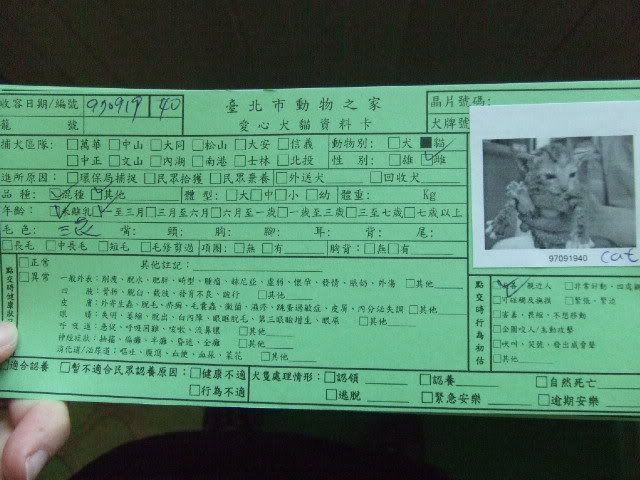 收容日期/編號 970919 40
臺北市動物之家
晶片號碼:
籠 號
愛心犬貓資料卡
犬牌號
捕犬區隊: □萬華 □中山 □大同 □松山 □大安 □信義 動物別: □犬 ■貓
□中正 □文山 □內湖 □南港 □士林 □北投 性 別: □雄 □雌
進所原因: □環保局捕捉 □民眾拾獲 □民眾棄養 □外送犬 □回收犬
品 種: □混種 □其他 體 型: □大 □中 □小 □幼 體重: Kg
年齡: □未離乳 □一至三月 □三月至六月 □六月至一歲 □一歲至三歲 □三歲至七歲 □七歲以上
毛色: 三色 背: 頭: 胸: 腳: 背: 尾:
□長毛 □中長毛 □短毛 □毛修剪過 項圈: □無 □有 胸背: □無 □有
97091940 cat
點交時健康狀
□正常
□異常
其他註記:
一般外表: 削瘦、脫水、肥胖、畸型、腫瘤、赫尼亞、虛弱、懷孕、發情、眼奶、外傷 □其他
四 肢:
皮 膚: 外寄生蟲、脫毛、
眼 睛: 失明、萎縮、脫出、白內障、眼瞼脫毛、第三眼瞼增生、眼屎 □其他
呼吸道: 急促、呼吸困難、咳嗽、流鼻膿 □其他
神經症狀: 抽搐、偏癱、半癱、昏迷、全癱 □其他
消化道/泌尿道: 嘔吐、腹瀉、血便、血尿、 □其他
點交時行為初估
親近人 □非常好動、四處
□可碰觸及撫摸 □緊張、緊迫
□害羞、畏縮、不想移動
□企圖咬人/主動攻擊
□吠叫、哭號、發出威脅聲
□其他
□適合認養 □暫不適合民眾認養原因: □健康不適
□行為不適
犬隻處理情形: □認領 □認養 □自然死亡
□逃脫 □緊急安樂 □逾期安樂